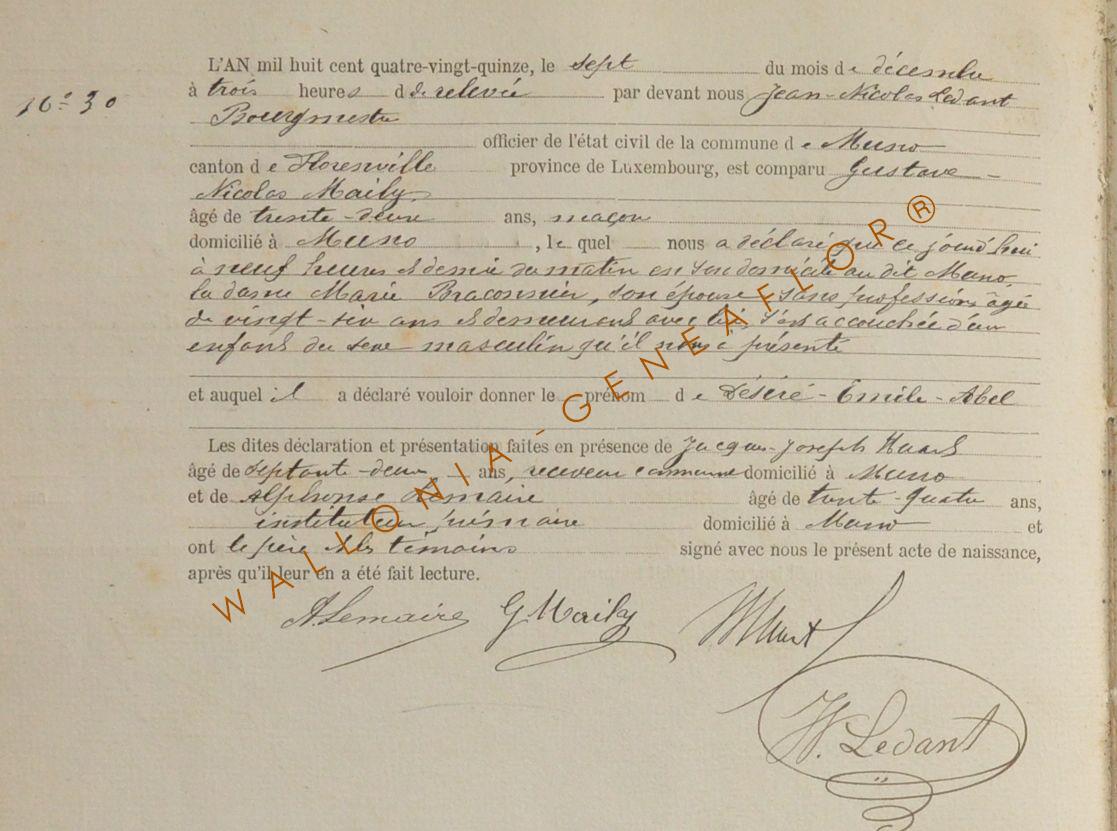 N° 30
L'AN mil huit cent quatre-vingt-quinze, le sept du mois de décembre
à trois heures de relevée par devant nous Jean-Nicolas Ledant
Bourgmestre
officier de l'état civil de la commune de Muno
canton de Florenville province de Luxembourg, est comparu Gustave
Nicolas Maily,
âgé de trente-deux ans, maçon
domicilié à Muno, lequel nous a déclaré que ce jourd'hui
à neuf heures et demie du matin en son domicile au dit Muno,
la dame Marie Braconnier, son épouse sans profession âgée
de vingt-six ans et demeurant avec lui, s'est accouchée d'un
enfant du sexe masculin qu'il nous a présenté
et auquel il a déclaré vouloir donner le prénom de Désiré-Emile-Abel
Les dites déclaration et présentation faites en présence de Jacques-Joseph
âgé de septante-deux ans, receveur communal domicilié à Muno
et de Alphonse Lemaire âgé de trente-quatre ans,
instituteur primaire domicilié à Muno et
ont le père et les témoins signé avec nous le présent acte de naissance,
après qu'il leur en a été fait lecture.
A. Lemaire G. Maily
N. Ledant
WALLONIA-GENEAFLOR®